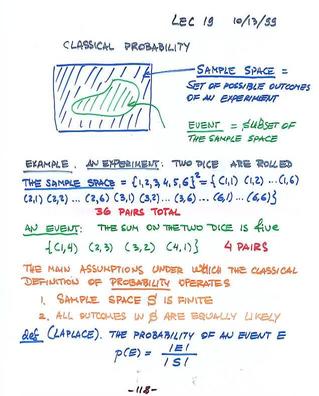 LEC 19 10/13/99
CLASSICAL PROBABILITY
SAMPLE SPACE =
SET OF POSSIBLE OUTCOMES
OF AN EXPERIMENT
EVENT = SUBSET OF
THE SAMPLE SPACE
EXAMPLE. AN EXPERIMENT: TWO DICE ARE ROLLED
THE SAMPLE SPACE = {1,2,3,4,5,6}² = {(1,1) (1,2) ...(1,6)
(2,1) (2,2) ... (2,6) (3,1) (3,2)... (3,6) ...(6,1) ...(6,6)}
36 PAIRS TOTAL
AN EVENT: THE SUM ON THE TWO DICE IS five
{(1,4) (2,3) (3,2) (4,1)} 4 PAIRS
THE MAIN ASSUMPTIONS UNDER WHICH THE CLASSICAL
DEFINITION OF PROBABILITY OPERATES
1. SAMPLE SPACE S IS FINITE
2. ALL OUTCOMES IN S ARE EQUALLY LIKELY
def (LAPLACE). THE PROBABILITY OF AN EVENT E
p(E) = |E| / |S|
-118-